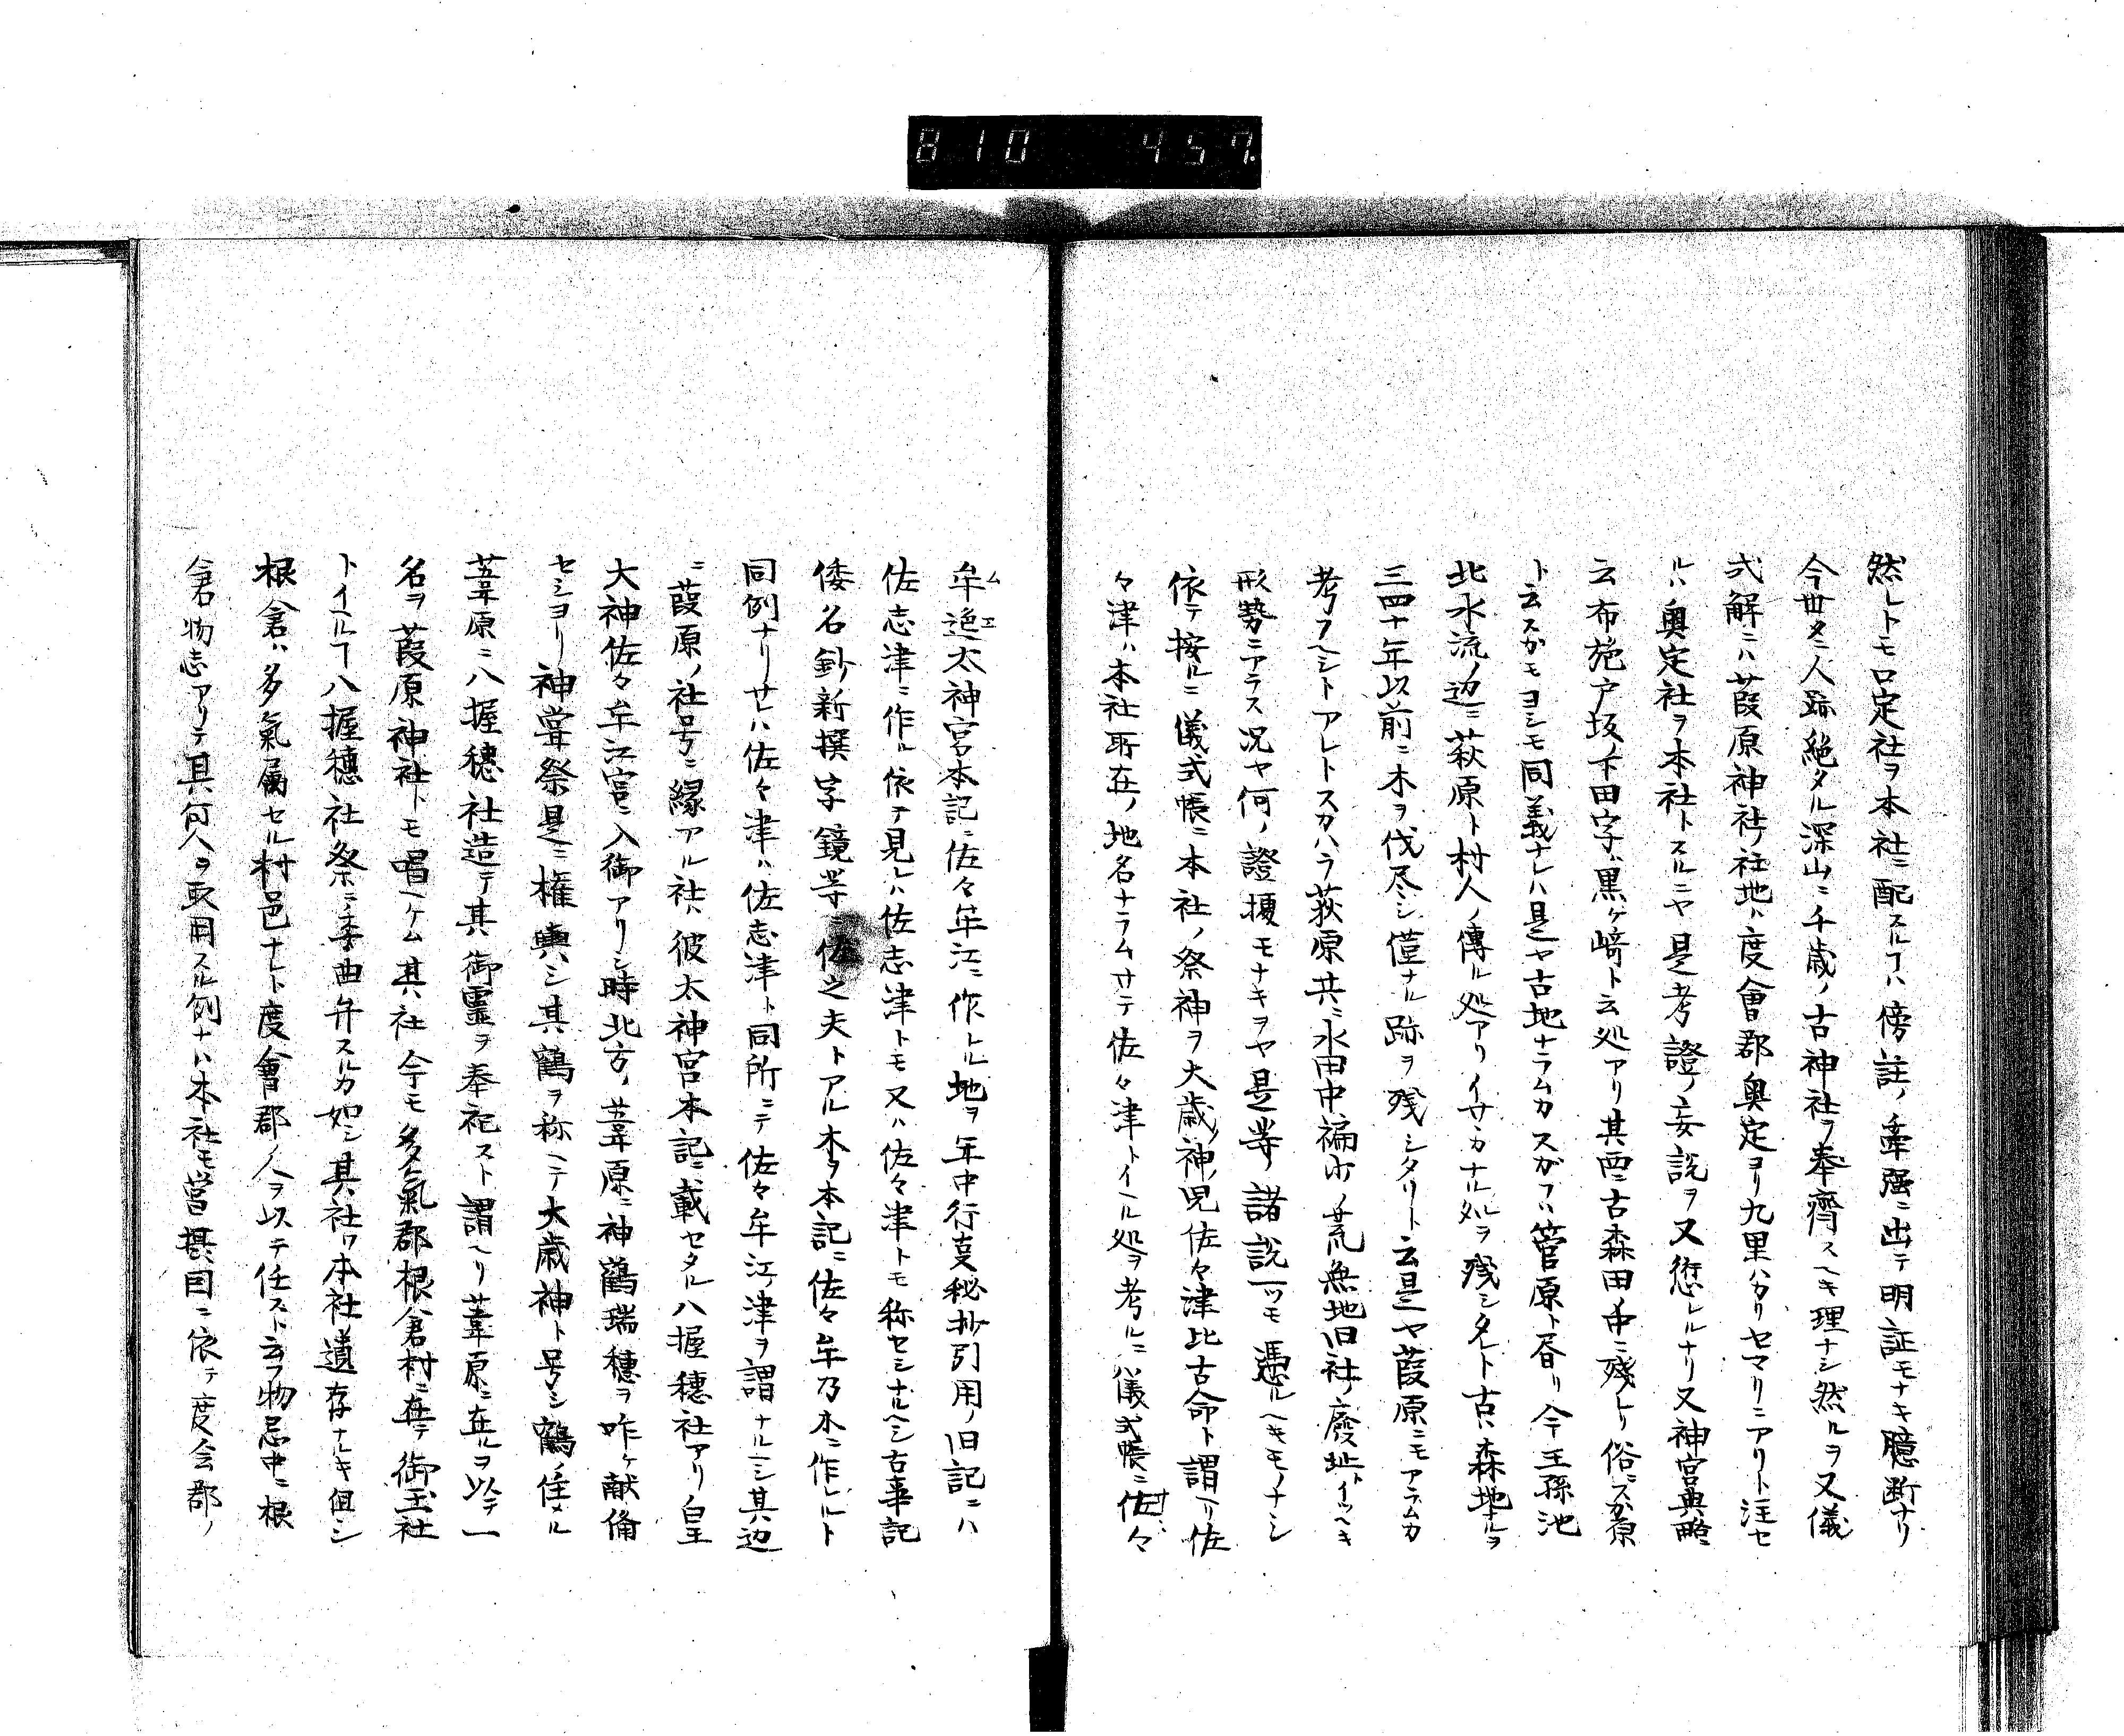 810 457.
然レトモ口定社ヲ本社ニ配スルヿハ傍註ノ牽強ニ出テ明証モナキ臆断ナリ
今世タニ人跡絶タル深山ニ千歳ノ古神社ヲ奉齊スヘキ理ナシ然ルヲ又儀
式解ニハ葭原神社ノ社地ハ度會郡奥定ヨリ九里ハカリセマリニアリト注セ
ルハ奥定社ヲ本社トスルニヤ是考證ノ妄説ヲ又愆レルナリ又神宮典畧ニ
云布施戸坂ノ下田字ハ黒ヶ﨑ト云処アリ其西ニ古森田中ニ残レリ俗ニスガ原
ト云スガモヨシモ同義ナレハ是ヤ古地ナラムカスガフハ菅原ト昏リ今王孫池
北水流ノ辺ニ萩原ト村人ノ傳ル処アリイサカナル処ヲ残シタレト古ハ森地ナルヲ
三四十年以前ニ木ヲ伐尽シ僅ナル跡ヲ残シタリト云是ヤ葭原ニモアラムカ
考フヘシトアレトスカハラ荻原共ニ水田中褊小ノ荒無地旧社ノ廢址トイツヘキ
形勢ニアラス况ヤ何ノ證㨿モナキヲヤ是等ノ諸説一ツモ憑ルヘキモノナシ
依テ按ルニ儀式帳ニ本社ノ祭神ヲ大歳神ノ児佐々津比古命ト謂ヘリ佐
々津ハ本社所在ノ地名ナラムサテ佐々津トイヘル処ヲ考ルニ儀式帳ニ佐々
牟逈太神宮本記ニ佐々牟江ニ作レル地ヲ年中行叓秘抄引用ノ旧記ニハ
佐志津ニ作ル依テ見レハ佐志津トモ又ハ佐々津トモ称セシナルヘシ古事記
倭名鈔新撰字鏡等ニ佐之夫トアル木ヲ本記ニ佐々牟乃木ニ作レルト
同例ナリサレハ佐々津ハ佐志津ト同所ニテ佐々牟江ノ津ヲ謂ナルヘシ其辺
ニ葭原ノ社号ニ縁アル社ハ彼太神宮本記ニ載セタル八握穗社アリ皇
大神佐々牟江宮ニ入御アリシ時北方ノ葦原ニ神鶴瑞穗ヲ咋ヶ献備
セシヨリ神嘗祭是ニ権輿シ其鶴ヲ称ヘテ大歳神ト号シ鶴ノ住メル
葦原ニ八握穗社造テ其御霊ヲ奉祀スト謂ヘリ葦原ニ在ルヲ以テ一
名ヲ葭原神社トモ唱ヘケム其社今モ多氣郡根倉村ニ在テ御玉社
トイヘルヿ八握穗社祭ニ委曲弁スルカ如シ其社ヮ本社ノ遺存ナルキ但シ
根倉ハ多氣属セル村邑ナレト度會郡ノ人ヲ以テ任スト云フ物忌中ニ根
倉物忌アリテ其何人ヲ取用スル例ナハ本社モ當摂目ニ依テ度会郡ノ